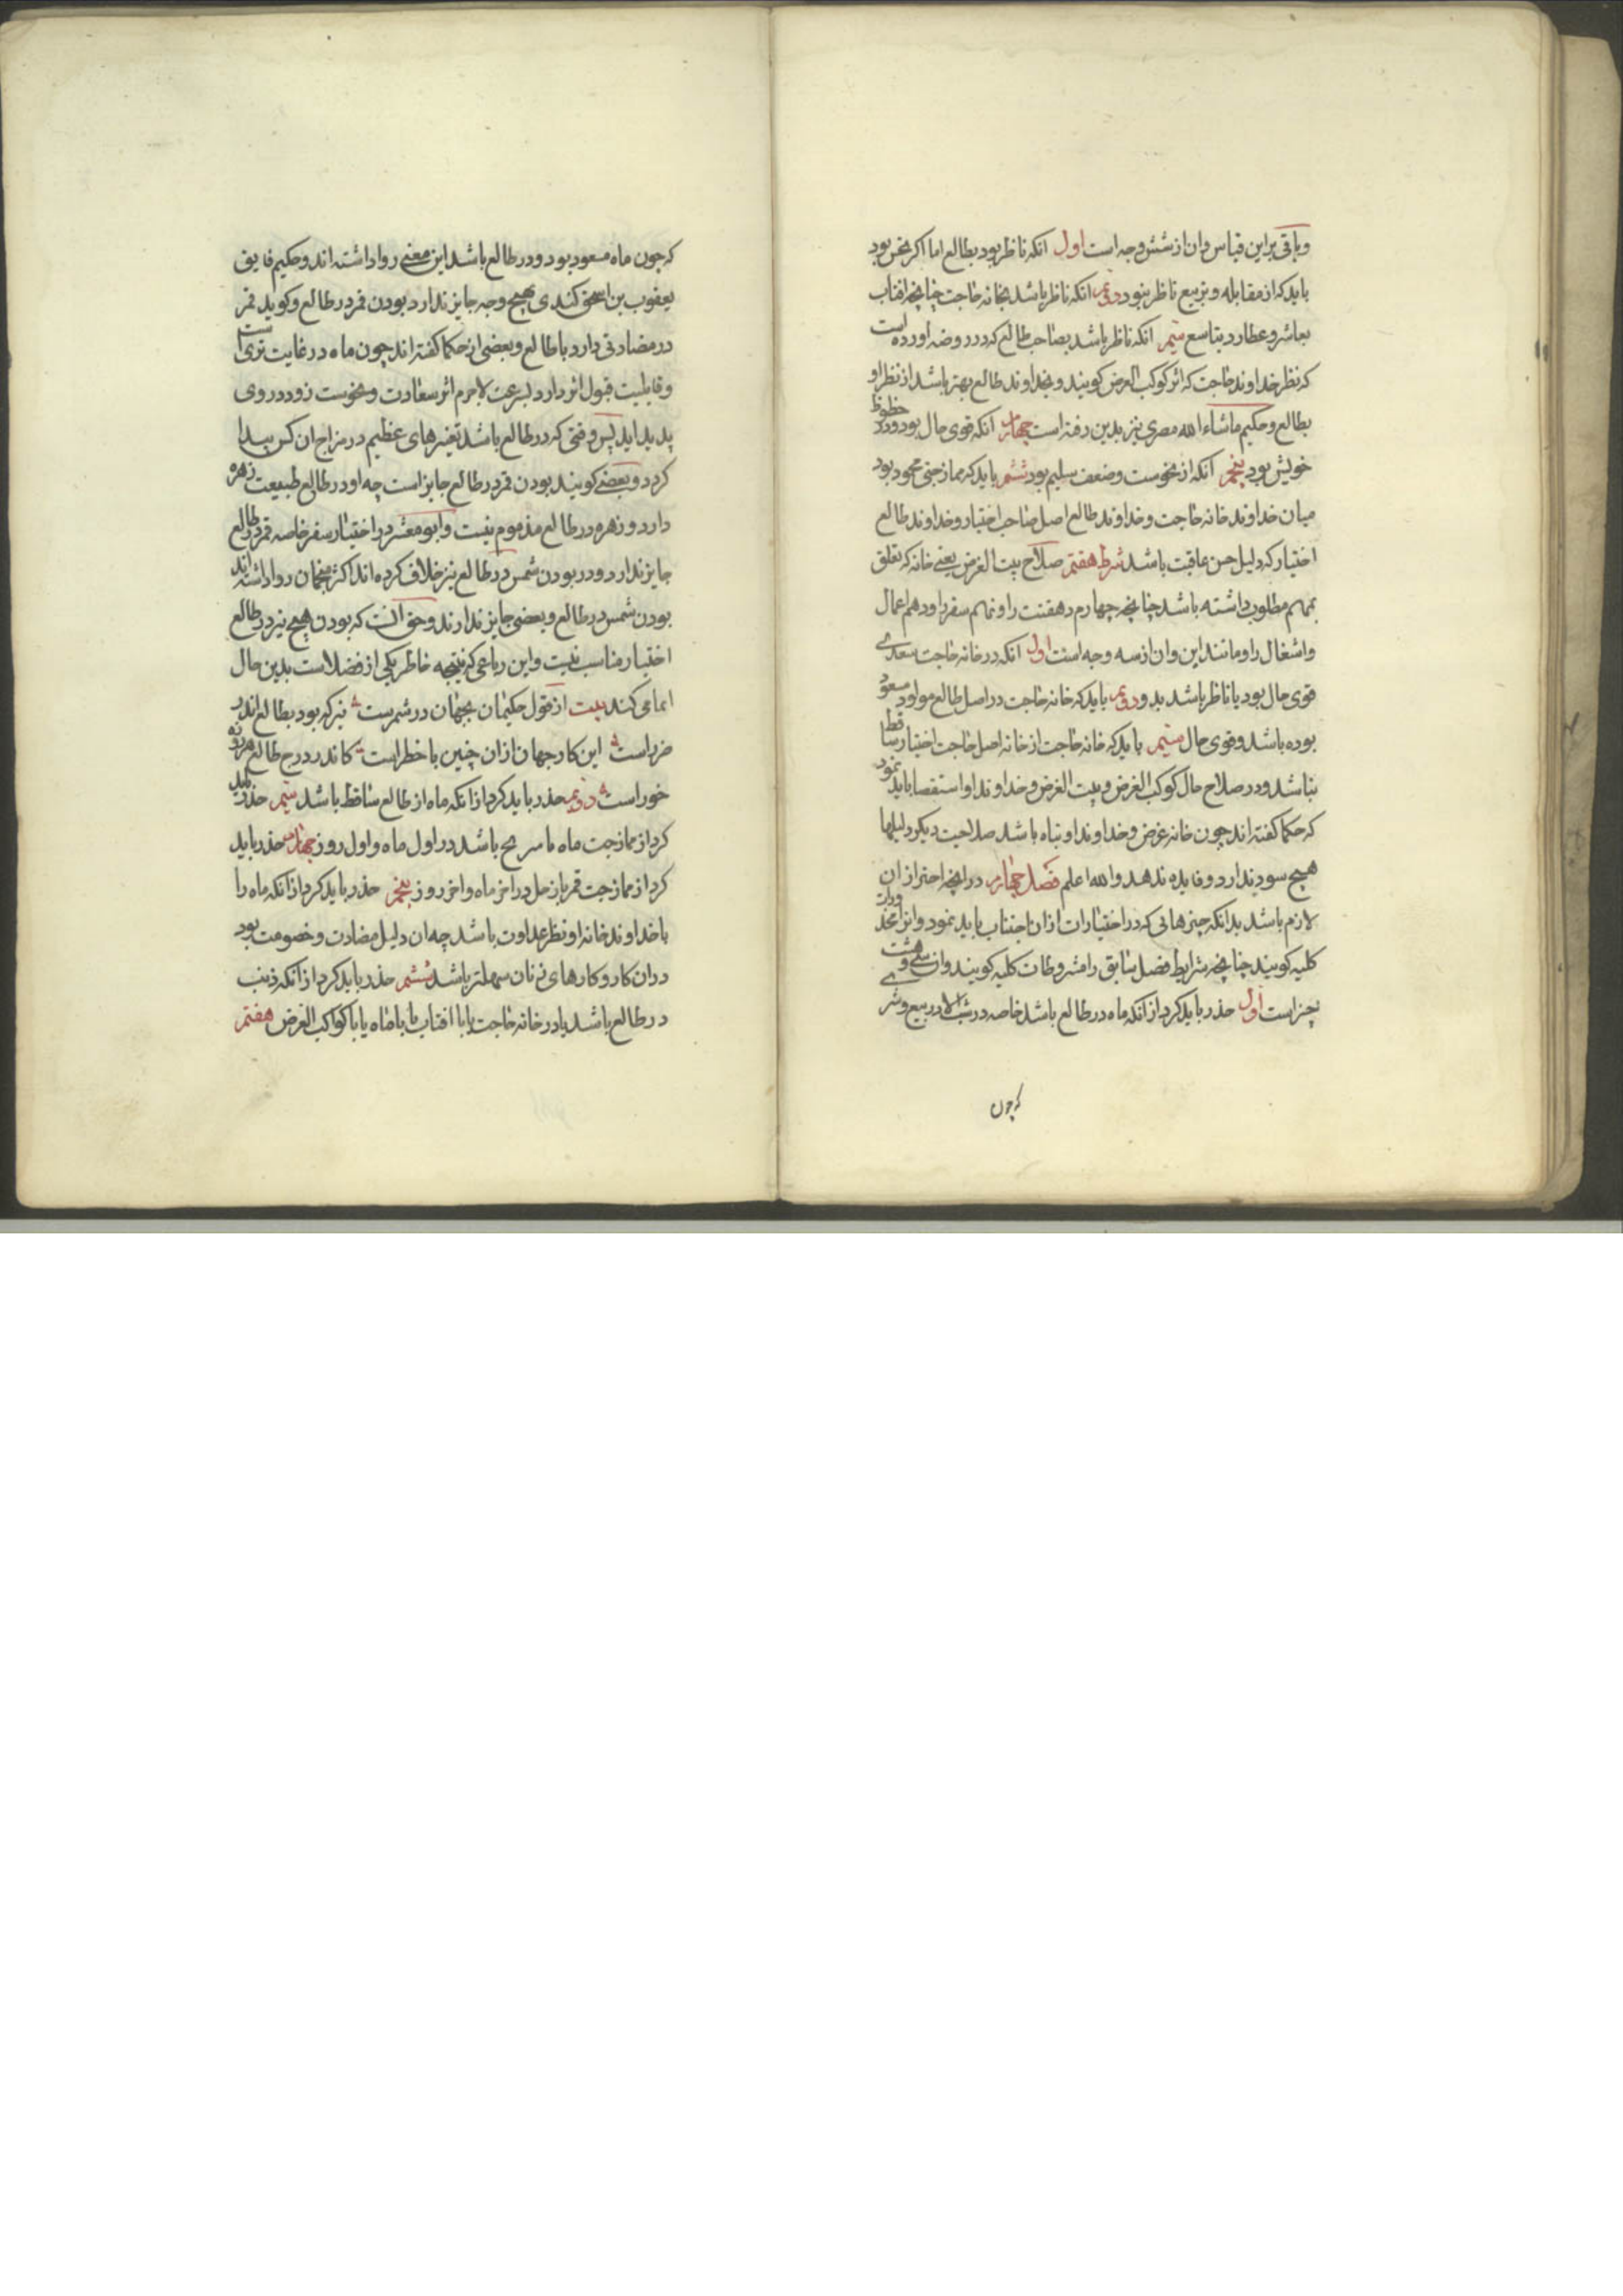 وباقی براین قیاس وان از شش وجه است اول انکه ناظر بود بطالع اما اکر نحس بود
باید که از مقابله و تربیع ناظر نبود دویم انکه ناظر باشد بخانه حاجت چنانچه افتاب
بعاشر و عطارد بتاسع سیم انکه ناظر باشد بصاحب طالع که در روضه اورده است
که نظر خداوند حاجت که انر کوکب الغرض کویند و بخداوند طالع بهتر باشد از نظر او
بطالع و حکیم ماشاءالله مصری نیز بدین رفته است چهارم انکه قوی حال بود و در حظوظ
خویش بود پنجم انکه از نحوست وضعف سلیم بود ششم باید که ممازجتی محمود بود
میان خداوند خانه حاجت و خداوند طالع اصل صاحب اختیار و خداوند طالع
اختیار که دلیل حسن عاقبت باشد شرط هفتم صلاح بیت الغرض یعنی خانه که تعلق
بمهم مطلوب داشته باشد چنانچه چهارم دهقنت را و نهم سفر را و دهم اعمال
واشغال را و مانند این وان از سه وجه است اول انکه در خانه حاجت سعدی
قوی حال بود یا ناظر باشد بدو دویم باید که خانه حاجت در اصل طالع مولود مسعود
بوده باشد و قوی حال سیم باید که خانه حاجت از خانه اصل حاجت اختیار ساقط
نباشد و در صلاح حال کوکب الغرض و بیت الغرض و خداوند او استقصا باید نمود
که حکما کفته اند چون خانه غرض و خداوند او تباه باشد صلاحیت دیکر دلیلها
هیچ سود ندارد و فایده ندهد والله اعلم فصل چهارم در انچه احتراز ازان
لازم باشد بدانکه چیزهائی که در اختیارات ازان اجتناب باید نمود وانرا محذورات
کلیه کویند چنانچه شرایط فصل سابق را مشروطات کلیه کویند وان سی وهشت
چیز است اول حذر باید کرد از انکه ماه در طالع باشد خاصه در شب الا در بیع و شر
که چون
که چون ماه مسعود بود و در طالع باشد این معنی روا داشته اند و حکیم فایق
یعقوب بن اسحق کندی بهیچ وجه جایز ندارد بودن قمر در طالع وکوید قمر
در مضادتی دارد با طالع و بعضی از حکما کفته اند چون ماه در غایت تری است
وقابلیت قبول اثر دارد بسرعت لاجرم اثر سعادت و نحوست زود در وی
پدید اید پس وقتی که در طالع باشد تغیرهای عظیم در مزاج ان کس پیدا
کردد و بعضی کویند بودن قمر در طالع جایز است چه او در طالع طبیعت زهره
دارد و زهره در طالع مذموم نیست وابومعشر در اختیار سفر خاصه قمر در طالع
جایز ندارد و در بودن شمس در طالع نیز خلاف کرده اند اکثر منجمان روا داشته اند
بودن شمس در طالع و بعضی جایز ندارند و حق انست که بودن هیچ نیر در طالع
اختیار مناسب نیست و این رباعی که نتیجه خاطر یکی از فضلاست بدین حال
ایما می کند بیت از قول حکیمان بجهان در شمرست نیر که بود بطالع اندر
ضرر است این کار جهان ازان چنین با خطر است کاندر درج طالع هر روزه
خور است دویم حذر باید کرد از انکه ماه از طالع ساقط باشد سیم حذر باید
کرد از ممازجت ماه با مریخ باشد در اول ماه و اول روز چهارم حذر باید
کرد از ممازجت قمر با زحل در اخر ماه و اخر روز پنجم حذر باید کرد از انکه ماه را
با خداوند خانه او نظر عداوت باشد چه ان دلیل مضادت و خصومت بود
دران کار و کارهای زنان سهلتر باشد ششم حذر باید کرد از انکه ذنب
در طالع باشد یا در خانه حاجت یا با افتاب یا با ماه یا با کواکب الغرض هفتم